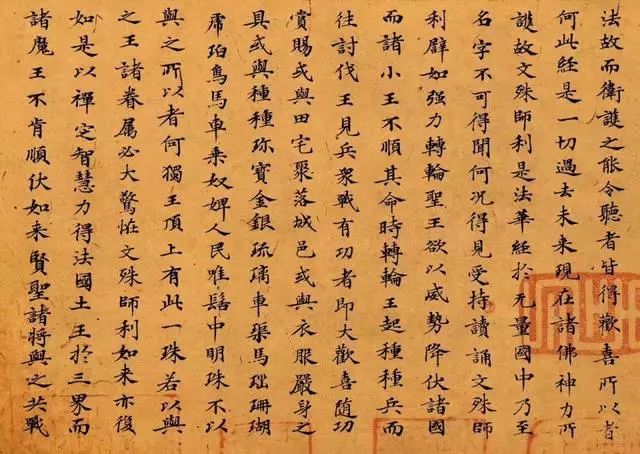 法故而衛護之能令聽者皆得歡喜所以者
何此經是一切過去未来現在諸佛神力所
護故文殊師利是法華經於无量國中乃至
名字不可得聞何況得見受持讀誦文殊師
利辟如强力轉輪聖王欲以威勢降伏諸國
而諸小王不順其命時轉輪王起種種兵而
往討伐王見兵衆戰有功者即大歡喜随功
賞賜或與田宅聚落城邑或與衣服嚴身之
具或與種種珎寶金銀琉璃車渠馬瑙珊瑚
虎珀鳥馬車乗奴婢人民唯髻中明珠不以
與之所以者何獨王頂上有此一珠若以與
之王諸眷属必大驚恠文殊師利如来亦復
如是以禪定智慧力得法國土王於三界而
諸魔王不肯順伏如来賢聖諸將與之共戰